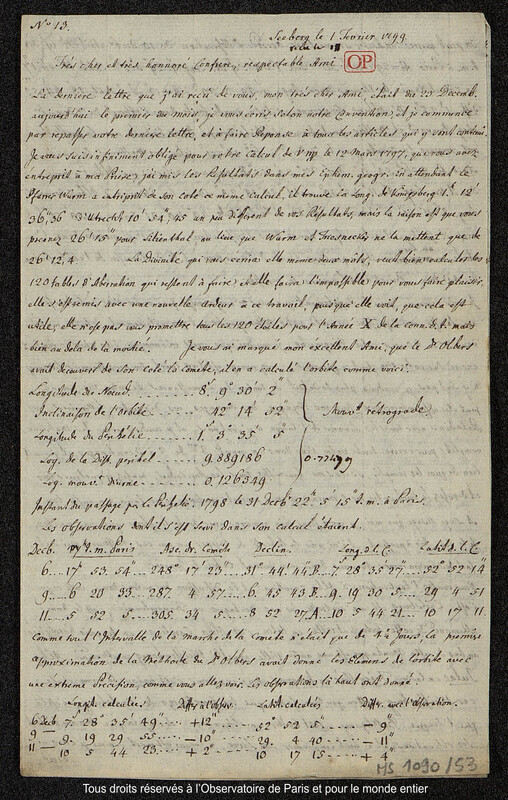 N° 13.
Seeberg le 1 Fevrier 1799.
OP
Très cher et très honnoré Confrere, respectable Ami
La derniere lettre que j'ai reçu de vous, mon très cher Ami, étoit du 23 Decemb.
aujourd'hui le premier du mois, je vous écris selon notre Convention, et je commence
par repasser votre derniere lettre, et à faire Reponse à tous les articles qui y sont contenus.
Je vous suis infiniment obligé pour votre Calcul de ♍ le 12 Mars 1797, que vous avez
entreprit à ma Priere; j'ai mis les Resultats dans mes Ephem. geogr. en attendant le
Pfarrer Wurm a entreprit de son coté ce même Calcul, il trouve la Long. de Königsberg 1h 12'
36",36 d'Utrecht 10' 54",45 un peu different de vos Resultats, mais la raison est que vous
prenez 26' 15" pour Lilienthal au lieu que Wurm et Triesnecker ne la mettent que de
26' 12",4. La Divinité qui vous ecrira elle même deux mots, veut bien calculer les
120 tables d'Aberration qui restent à faire; elle faira l'impossible pour vous faire plaisir,
elle s'est remis avec une nouvelle ardeur à ce travail, puisqu'elle voit, que cela est
utile, elle n'ose pas vous promettre tous les 120 étoiles pour l'Année X de la Conn. d. t. mais
bien au dela de la moitié. Je vous ai marqué mon éxcellent Ami, que le Dr Olbers
avoit decouvert de son coté la Comète, il en a calculé l'orbite comme voici:
Longitude du Noeud. 8s 9° 30' 2"
Inclinaison de l'Orbite 42 14 52"
Mouvt. rétrograde.
Longitude du Perihelie 1s 3° 35' 5"
Log. de la Dist. perihel 9.889186
0.77499
Log. mouvt. diurne 0.126349
Instant du passage pr le Perihelie. 1798 le 31 Decb 22h 5' 15" t. m. à Paris.
Les observations dont il s'est servi dans son calcul étoient.
Decb. t. m. Paris Asc. dr. Comète Declin. Long. d. l. C. Latit. d. l. C.
6.... 17h 53' 54" .. 248° 17' 23" ... 31° 44' 44" B.. 7s 28° 35' 37" .... 52° 52' 14"
9.... 6 20 33.... 287. 4 57... 6. 45 43 B.. 9. 19 30 5.... 29 4 51
11.... 5 52 5.... 305 34 5... 8 52 27. A.. 10 5 44 21.... 10 17 11
Comme tout l'Intervalle de la marche de la Comète n'étoit que de 4 ½ Jours, la premiere
approximation de la Méthode du Dr Olbers avoit donné les Elemens de l'orbite avec
une extreme Precision, comme vous allez voir. Les observations la haut ont donné.
Longit. calculées Diffr. à l'observ. Latit. calculées Diffr. avec l'observation.
6 Decb. 7s 28° 35' 49" + 12" 52° 52' 5" – 9"
9 — 9. 19 29 55 – 10" 29. 4 40 – 11"
11 — 10 5 44 23 + 2" 10 17 15 + 4"
MS 1090/53
Tous droits réservés à l'Observatoire de Paris et pour le monde entier